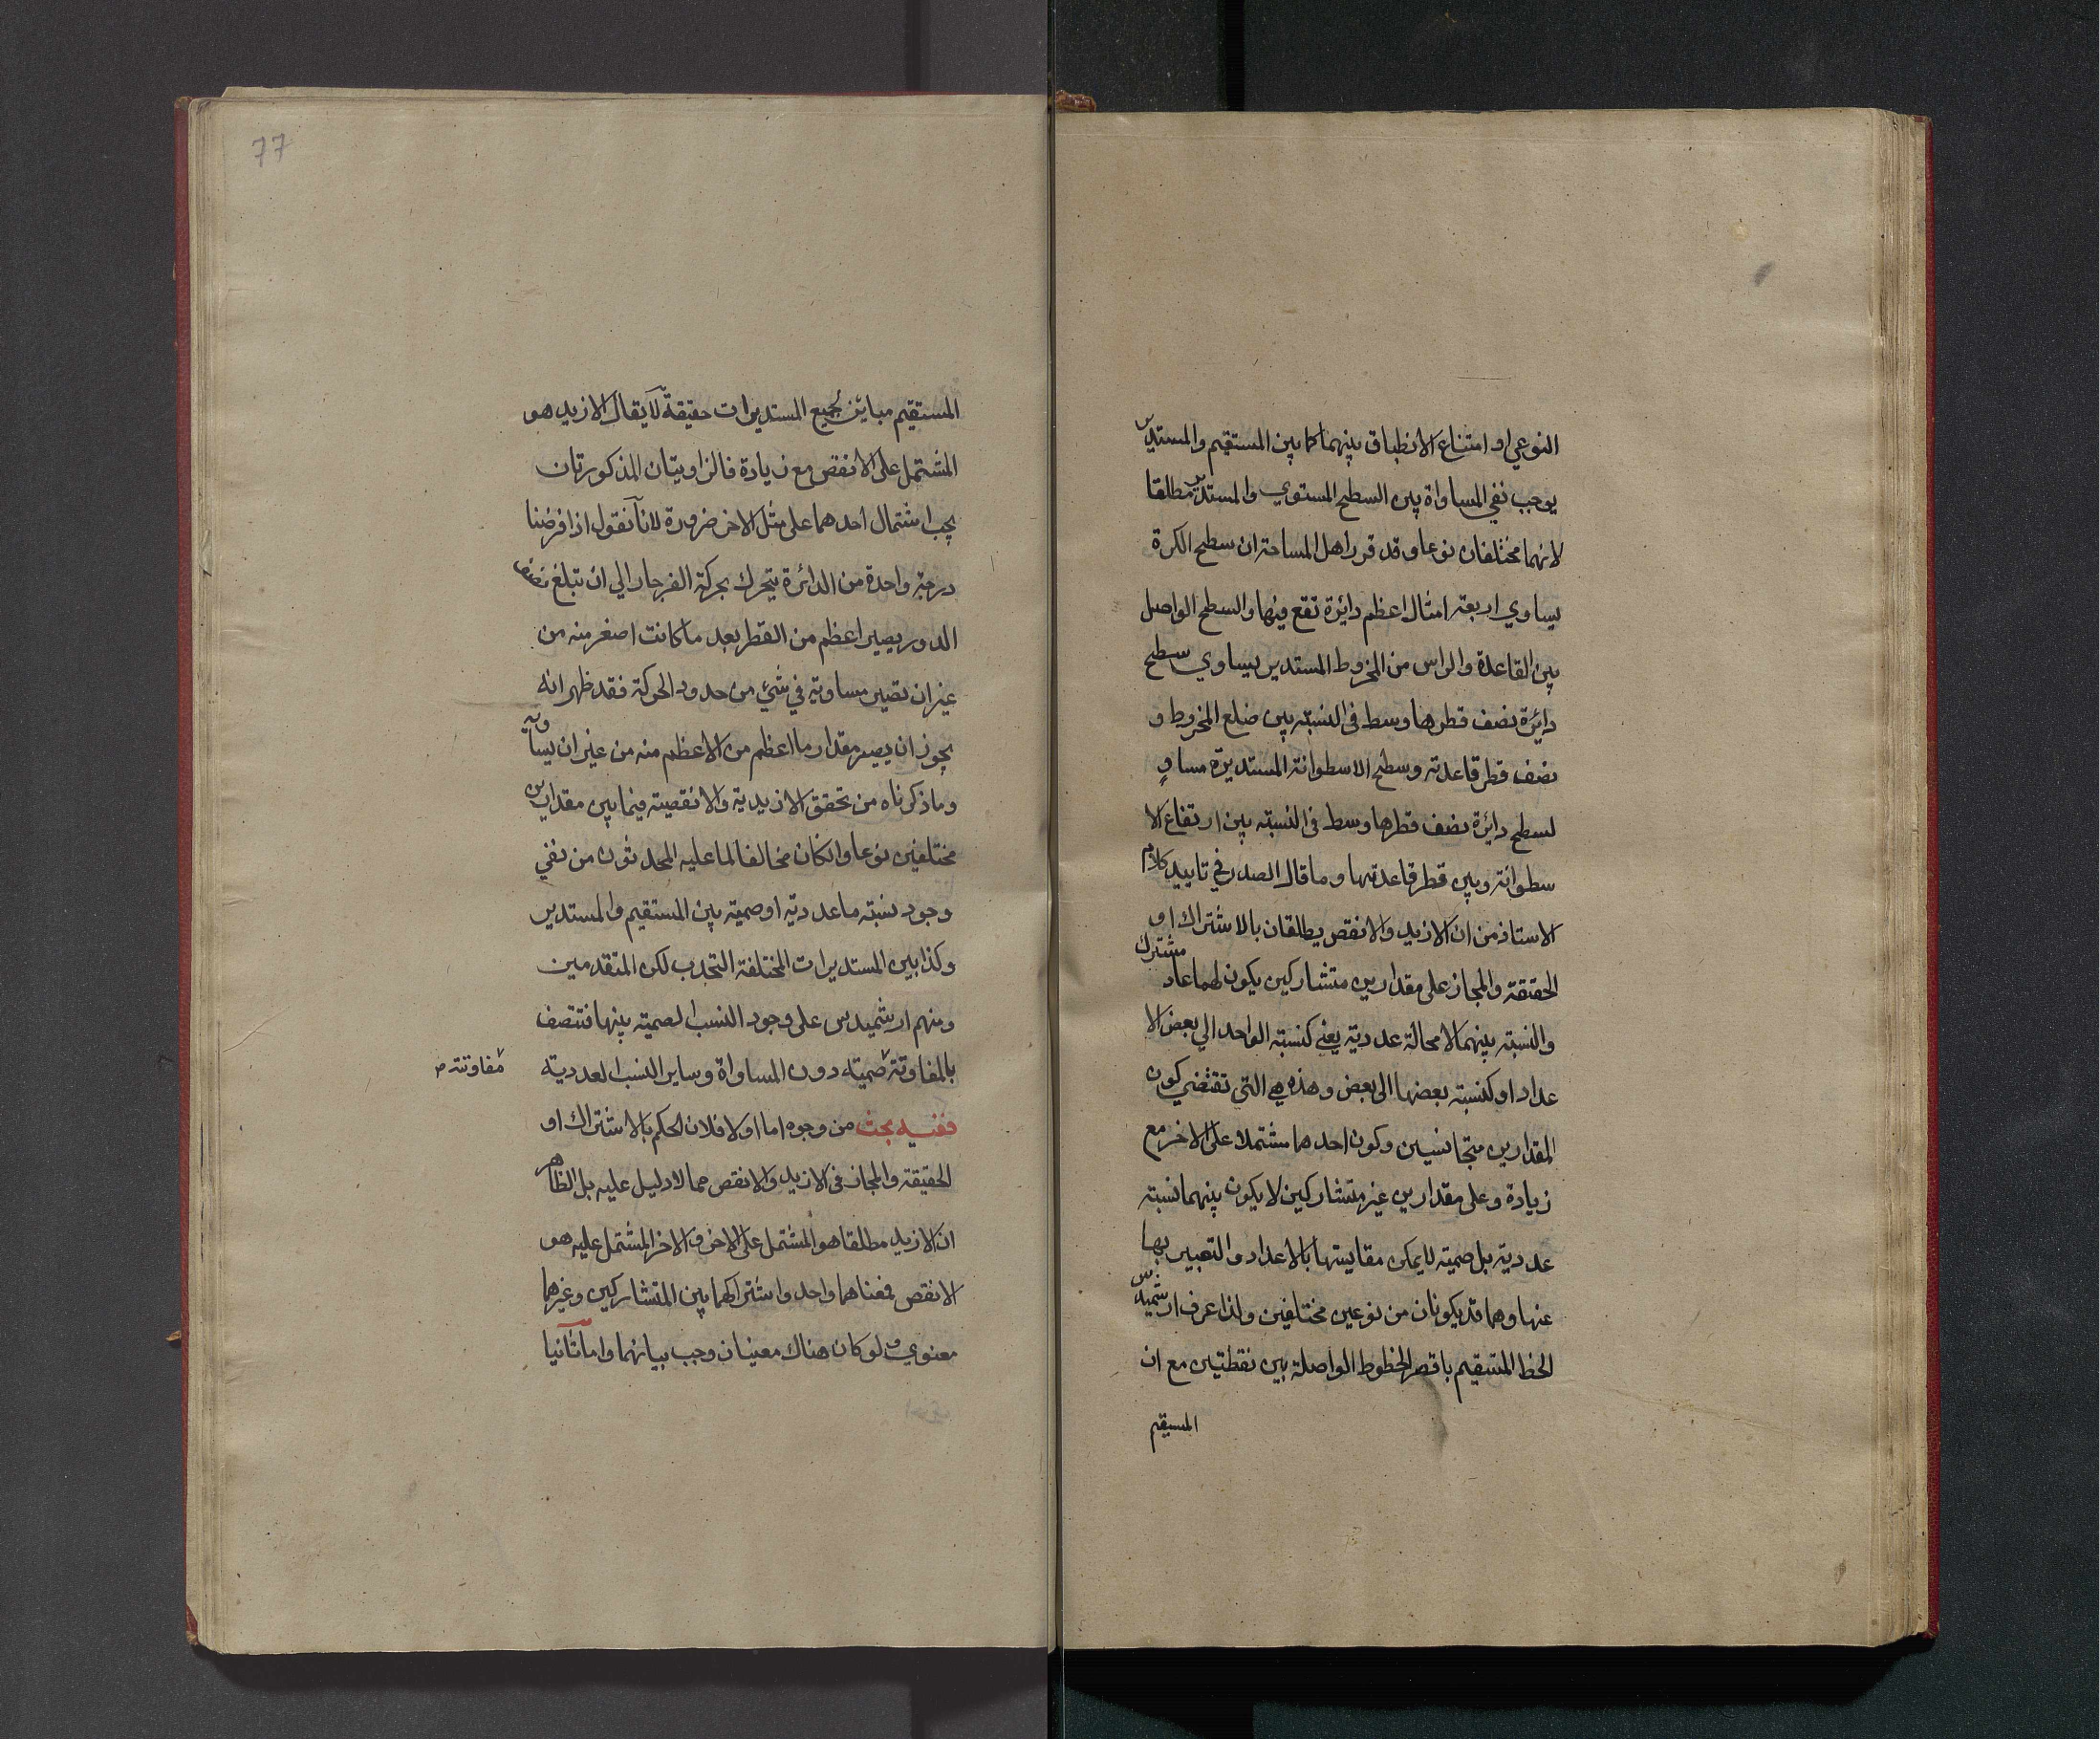 النوعي او امتناع الانطباق بينهما كما بين المستقيم والمستدير
يوجب نفي المساواة بين السطح المستوي والمستدير مطلقا
لانهما مختلفان نوعا وقد قرر اهل المساحة ان سطح الكرة
يساوي اربعة امثال اعظم دايرة تقع فيها والسطح الواصل
بين القاعدة والراس من المخروط المستدير يساوي سطح
دايرة نصف قطرها وسط في النسبة بين ضلع المخروط و
نصف قطر قاعدته وسطح الاسطوانة المستديرة مساوٍ
لسطح دايرة نصف قطرها وسط في النسبة بين ارتفاع الا
سطوانة وبين قطر قاعدتها وما قال الصدر في تاييد كلام
الاستاذ من ان الازيد والانقص يطلقان بالاشتراك او
الحقيقة والمجاز على مقدارين متشاركين يكون لهما عاد مشترك
والنسبة بينهما لا محالة عددية يعني كنسبة الواحد الي بعض الا
عداد او كنسبة بعضها الى بعض وهذه هي التي تقتضي كون
المقدارين متجانسين وكون احدهما مشتملا على الاخر مع
زيادة وعلى مقدارين غير متشاركين لا يكون بينهما نسبة
عددية بل صمية لا يمكن مقايستها بالاعداد والتعبير بها
عنها وهما قد يكونان من نوعين مختلفين ولذا عرف ارشميدس
الخط المستقيم باقصر الخطوط الواصلة بين نقطتين مع ان
المستقيم
77
المستقيم مباين لجميع المستديرات حقيقة لا يقال الازيد هو
المشتمل على الانقص مع زيادة فالزاويتان المذكورتان
يجب اشتمال احدهما على مثل الاخر ضرورة لانا نقول اذا فرضنا
درجة واحدة من الدائرة يتحرك بحركة الفرجار الي ان تبلغ نصف
الدور يصير اعظم من القطر بعد ما كانت اصغر منه من
غير ان تصير مساوية في شيء من حدود الحركة فقد ظهر انه
يجوز ان يصير مقدار ما اعظم من الاعظم منه من غير ان يساويه
وما ذكرناه من تحقق الازيدية والانقصية فيما بين مقدارين
مختلفين نوعا وانكان مخالفا لما عليه المحدثون من نفي
وجود نسبة ما عددية او صمية بين المستقيم والمستدير
وكذا بين المستديرات المختلفة التحدب لكن المتقدمين
ومنهم ارشميدس على وجود النسب الصمية بينها فتتصف
بالمفاوتة صمية دون المساواة وساير النسب العددية
مفاوتة
ففيه بحث من وجوه اما اولا فلان الحكم بالاشتراك او
الحقيقة والمجاز في الازيد والانقص مما لا دليل عليه بل الظاهر
ان الازيد مطلقا هو المشتمل على الاخر والاخر المشتمل عليه هو
الانقص فمعناهما واحد واشتراكهما بين المتشاركين وغيرهما
معنوي ولو كان هناك معنيان وجب بيانهما واما ثانيا